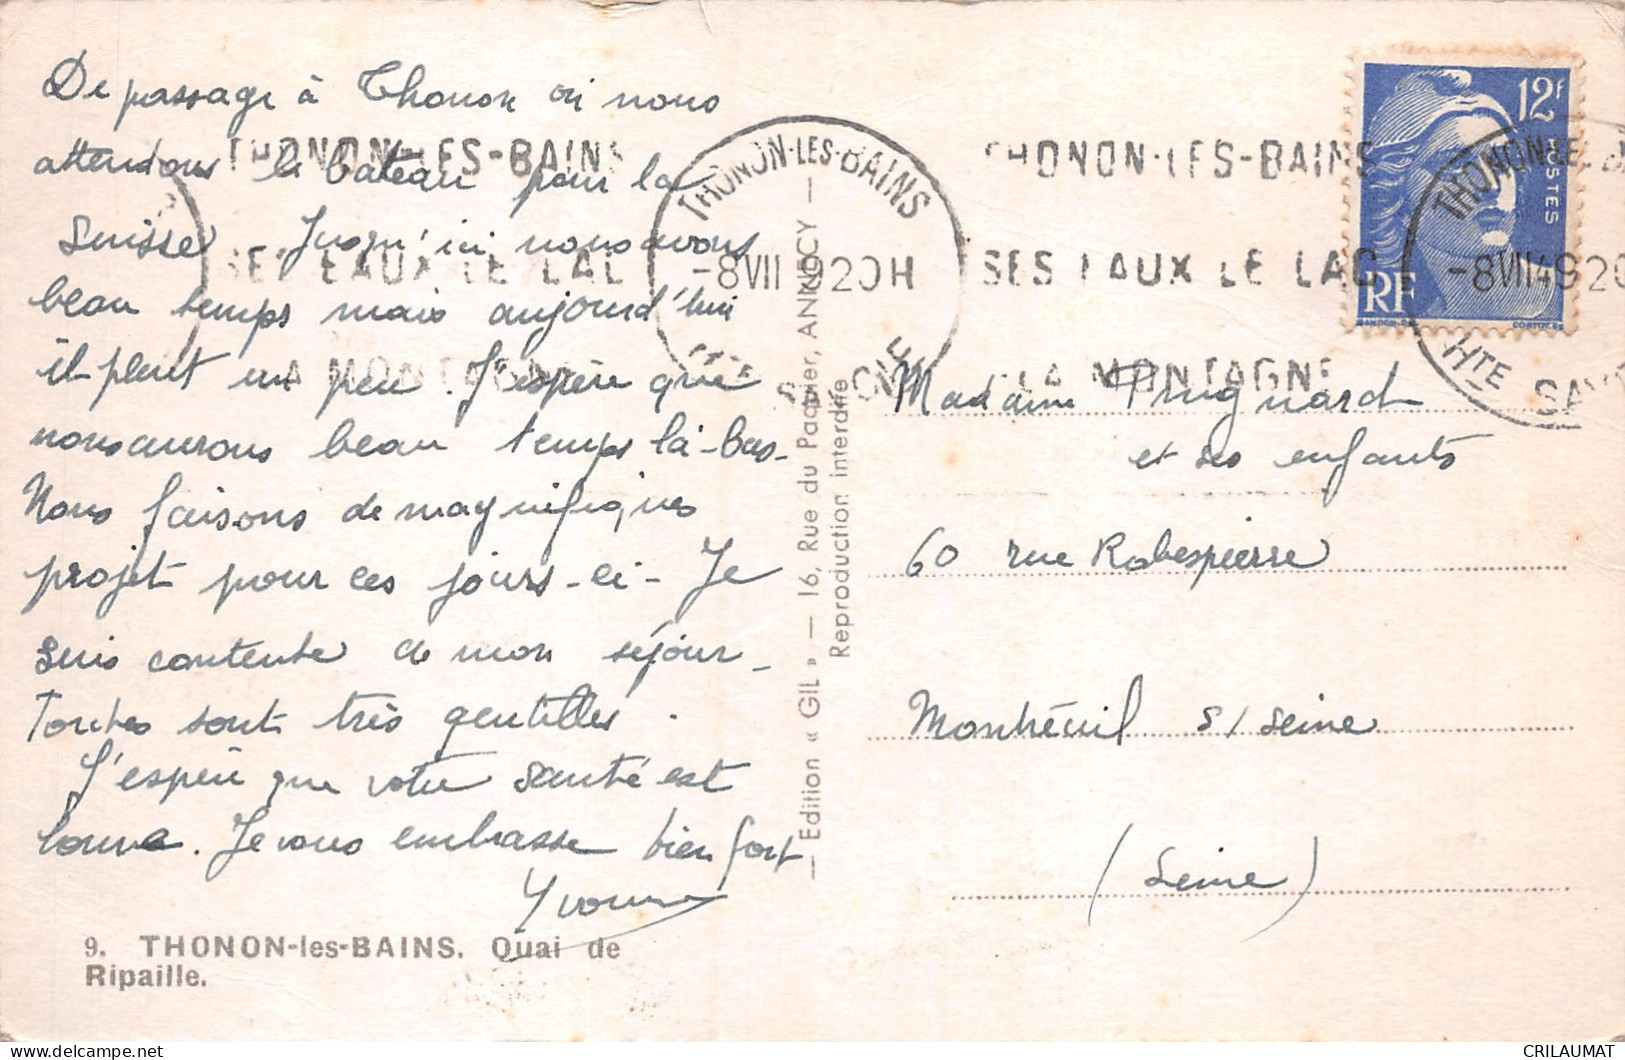 De passage à Thonon où nous
attendons le bateau pour la
Suisse. Jusqu'ici nous avons
beau temps mais aujourd'hui
il pleut un peu. J'espère que
nous aurons beau temps là-bas-
Nous faisons de magnifiques
projet pour ces jours-ci- Je
suis contente de mon séjour-
Toutes sont très gentilles.
J'espère que votre santé est
bonne. Je vous embrasse bien fort
Yvonne
9. THONON-les-BAINS. Quai de
Ripaille.
— Edition « GIL » — 16, Rue du Papier, ANNECY —
Reproduction interdite
THONON-LES-BAINS
SES EAUX LE LAC
LA MONTAGNE
THONON-LES-BAINS
-8 VII 49 20H
HTE SAVOIE
THONON-LES-BAINS
SES EAUX LE LAC
LA MONTAGNE
THONON-LES-BA
-8 VII 49 20
HTE SAVOI
12F
POSTES
RF
GANDON
CORTOT
Madame
et ses enfants
60 rue Robespierre
Montreuil s/ Seine
(Seine)
CRILAUMAT